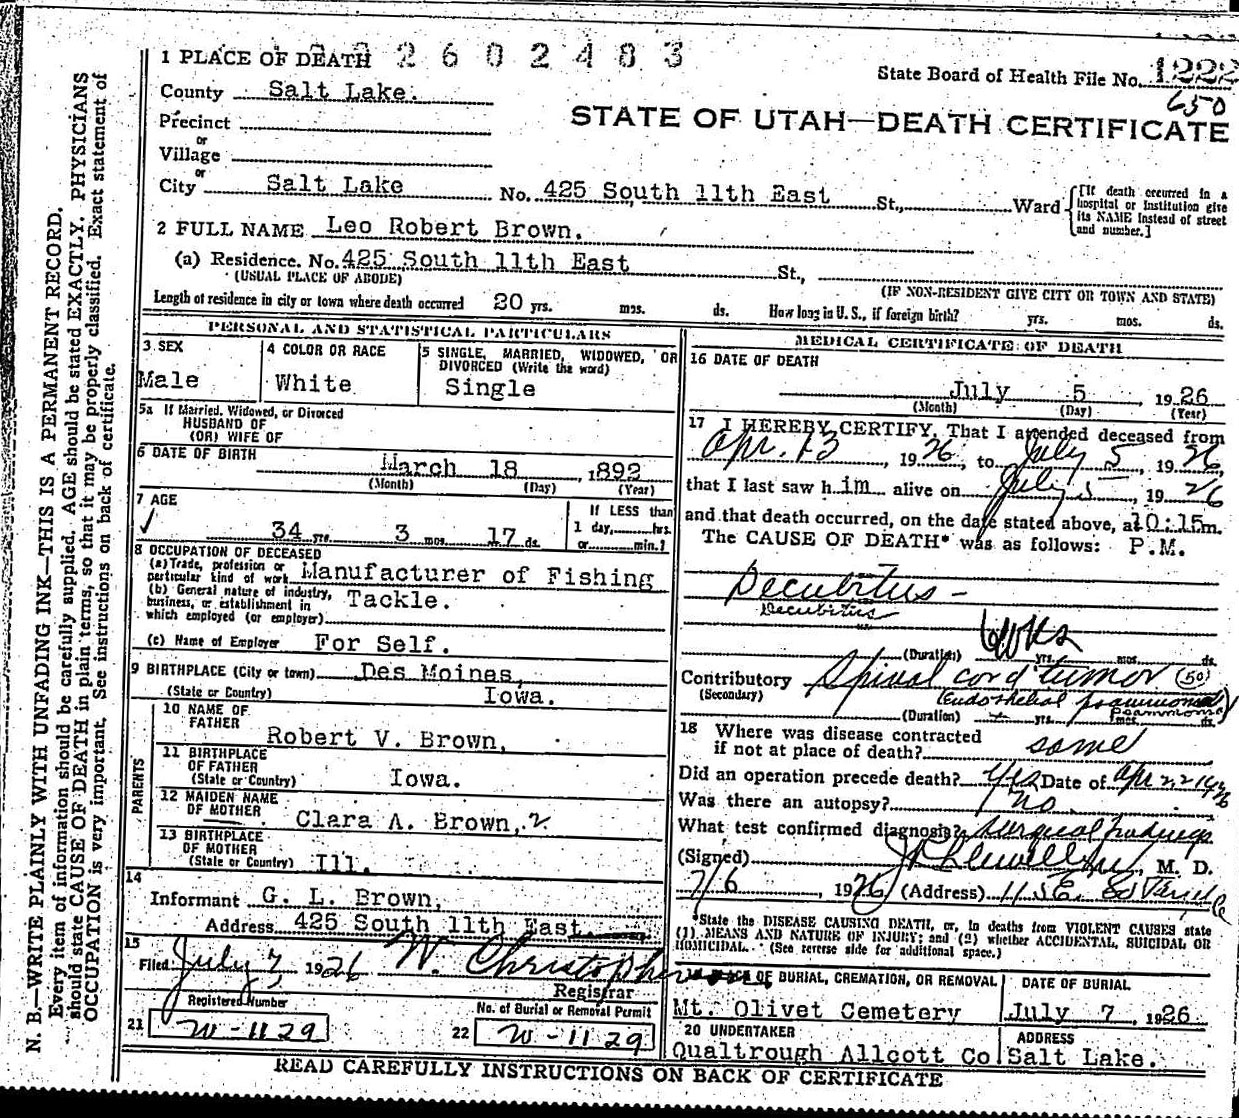 1 PLACE OF DEATH 2 6 0 2 4 8 3
State Board of Health File No. 1222
650
County Salt Lake.
STATE OF UTAH—DEATH CERTIFICATE
Precinct
or
Village
or
City Salt Lake No. 425 South 11th East St., Ward
[If death occurred in a hospital or institution give its NAME instead of street and number.]
2 FULL NAME Leo Robert Brown.
(a) Residence. No. 425 South 11th East St.,
(USUAL PLACE OF ABODE) (IF NON-RESIDENT GIVE CITY OR TOWN AND STATE)
Length of residence in city or town where death occurred 20 yrs. mos. ds. How long in U.S., if foreign birth? yrs. mos. ds.
PERSONAL AND STATISTICAL PARTICULARS
3 SEX
Male
4 COLOR OR RACE
White
5 SINGLE, MARRIED, WIDOWED, OR DIVORCED (Write the word)
Single
5a If Married, Widowed, or Divorced
HUSBAND OF
(OR) WIFE OF
6 DATE OF BIRTH
March 18, 1892
(Month) (Day) (Year)
7 AGE
34 yrs. 3 mos. 17 ds.
If LESS than
1 day, hrs.
or min.?
8 OCCUPATION OF DECEASED
(a) Trade, profession or
particular kind of work Manufacturer of Fishing
(b) General nature of industry,
business, or establishment in Tackle.
which employed (or employer)
(c) Name of Employer For Self.
9 BIRTHPLACE (City or town) Des Moines,
(State or Country) Iowa.
PARENTS
10 NAME OF
FATHER
Robert V. Brown,
11 BIRTHPLACE
OF FATHER
(State or Country) Iowa.
12 MAIDEN NAME
OF MOTHER
Clara A. Brown,
13 BIRTHPLACE
OF MOTHER
(State or Country) Ill.
14
Informant G. L. Brown,
Address 425 South 11th East
15
Filed July 7 1926 W. Christopher
Registrar
Registered Number
21
22
No. of Burial or Removal Permit
MEDICAL CERTIFICATE OF DEATH
16 DATE OF DEATH
July 5, 1926
(Month) (Day) (Year)
17 I HEREBY CERTIFY, That I attended deceased from
Apr. 13, 1926, to July 5, 1926,
that I last saw him alive on July 5, 1926
and that death occurred, on the date stated above, at 10:15m.
The CAUSE OF DEATH* was as follows: P.M.
Decubitus -
Decubitus
(Duration) 6 wks yrs. mos. ds.
Contributory Spinal cord tumor (50)
(Secondary) (Endothelial psammoma)
(Duration) yrs. mos. ds.
18 Where was disease contracted
if not at place of death? same
Did an operation precede death? yes Date of Apr 22 1926
Was there an autopsy? no
What test confirmed diagnosis? surgical findings
(Signed) M. D.
7/6, 1926 (Address)
*State the DISEASE CAUSING DEATH, or, in deaths from VIOLENT CAUSES state
(1) MEANS AND NATURE OF INJURY; and (2) whether ACCIDENTAL, SUICIDAL OR
HOMICIDAL. (See reverse side for additional space.)
OF BURIAL, CREMATION, OR REMOVAL
Mt. Olivet Cemetery
DATE OF BURIAL
July 7, 1926
20 UNDERTAKER
Qualtrough Allcott Co
ADDRESS
Salt Lake.
READ CAREFULLY INSTRUCTIONS ON BACK OF CERTIFICATE
N. B.—WRITE PLAINLY WITH UNFADING INK—THIS IS A PERMANENT RECORD.
Every item of information should be carefully supplied. AGE should be stated EXACTLY. PHYSICIANS
should state CAUSE OF DEATH in plain terms, so that it may be properly classified. Exact statement of
OCCUPATION is very important. See instructions on back of certificate.